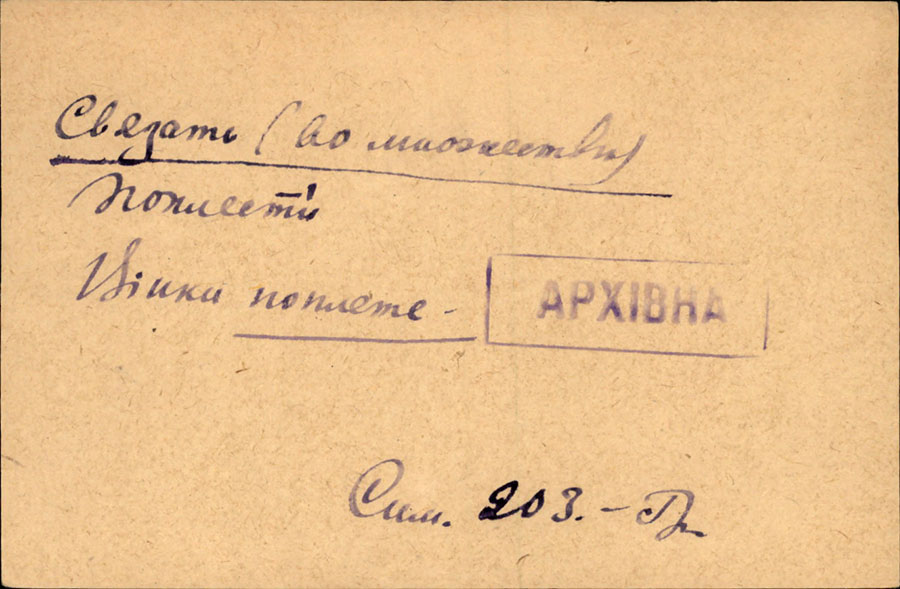 Связать (во множестви)
Поплести́
Вінки поплете –
АРХІВНА
Сим. 203. –